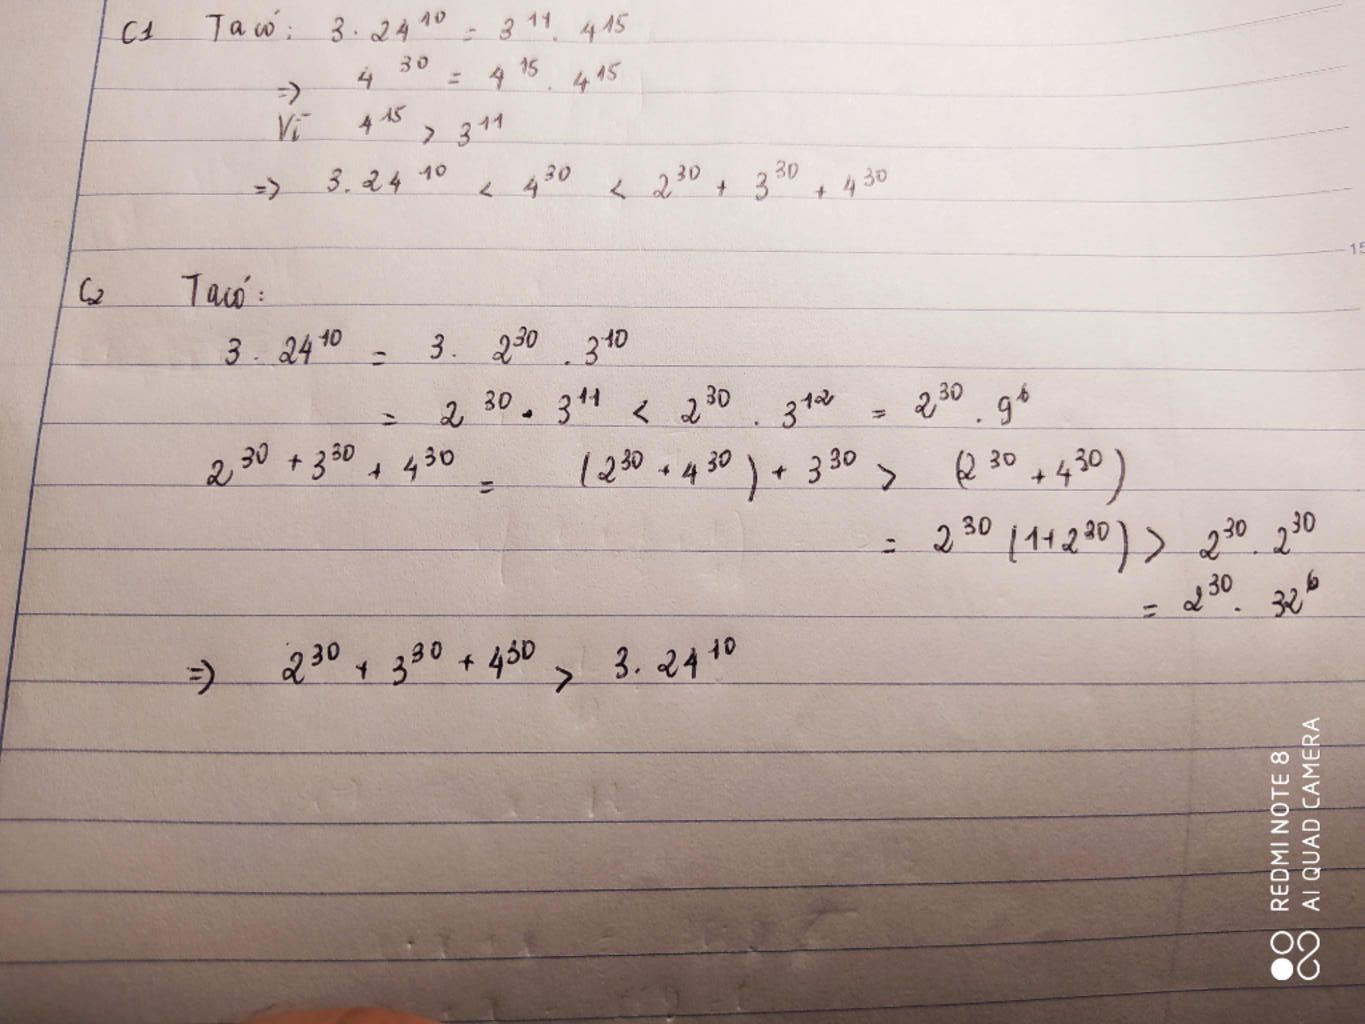 C1 Ta có: 3 . 24¹⁰ = 3¹¹ . 4¹⁵
=> 4³⁰ = 4¹⁵ . 4¹⁵
Vì 4¹⁵ > 3¹¹
=> 3 . 24¹⁰ < 4³⁰ < 2³⁰ + 3³⁰ + 4³⁰
15
C2 Ta có:
3 . 24¹⁰ = 3 . 2³⁰ . 3¹⁰
= 2³⁰ . 3¹¹ < 2³⁰ . 3¹² = 2³⁰ . 9⁶
2³⁰ + 3³⁰ + 4³⁰ = (2³⁰ + 4³⁰) + 3³⁰ > (2³⁰ + 4³⁰)
= 2³⁰ (1+2³⁰) > 2³⁰ . 2³⁰
= 2³⁰ . 32⁶
=> 2³⁰ + 3³⁰ + 4³⁰ > 3 . 24¹⁰
REDMI NOTE 8
AI QUAD CAMERA